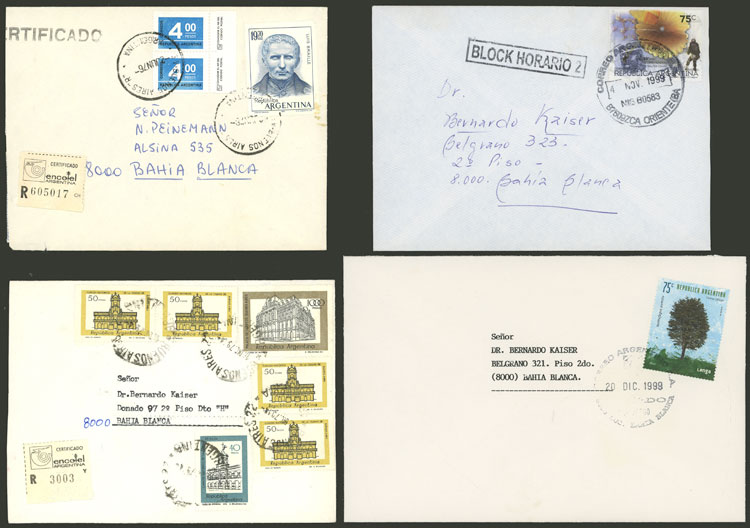 CERTIFICADO
4.00
PESOS
REPUBLICA ARGENTINA
4.00
PESOS
REPUBLICA ARGENTINA
LUIS BRAILLE
República
ARGENTINA
BUENOS AIRES
SEÑOR
N. PEINEMANN
ALSINA 535
8000 BAHIA BLANCA
CERTIFICADO
encotel
ARGENTINA
R 605017
BLOCK HORARIO 2
75c
REPUBLICA ARGENTINA
CORREO ARGENTINO
4 NOV. 1999
NIS B0583
B7502ZCA ORIENTE(BA
Dr.
Bernardo Kaiser
Belgrano 323.
2º Piso -
8.000. Bahía Blanca
50 PESOS
50 PESOS
1000
República Argentina
República Argentina
República Argentina
50 PESOS
República Argentina
50 PESOS
República Argentina
40
República Argentina
BUENOS AIRES
Señor
Dr.Bernardo Kaiser
Donado 97 2º Piso Dto "H"
8000 BAHIA BLANCA
CERTIFICADO
encotel
ARGENTINA
R 3003
75c
REPUBLICA ARGENTINA
Lenga
20 DIC. 1999
BAHIA BLANCA
Señor
DR. BERNARDO KAISER
BELGRANO 321. Piso 2do.
(8000) BAHIA BLANCA.